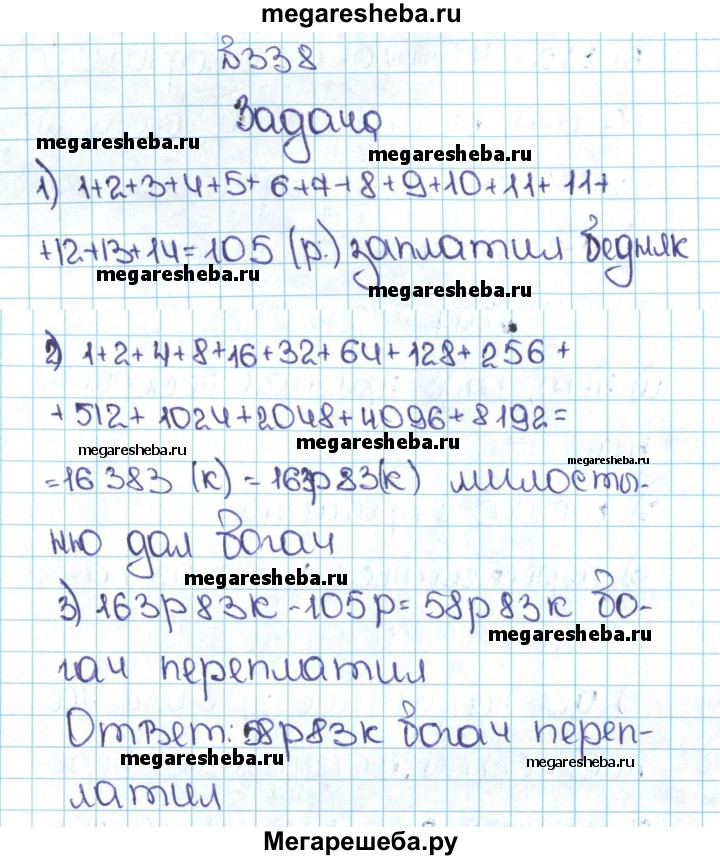 megaresheba.ru
№338
Задача
megaresheba.ru
megaresheba.ru
1) 1+2+3+4+5+6+7+8+9+10+11+11+
+12+13+14=105 (р.) заплатил бедняк
megaresheba.ru
megaresheba.ru
2) 1+2+4+8+16+32+64+128+256+
+512+1024+2048+4096+8192=
megaresheba.ru
megaresheba.ru
megaresheba.ru
=16383 (к) = 163р83(к) милосты-
ню дал богач
megaresheba.ru
3) 163р83к-105р=58р83к бо-
megaresheba.ru
гач переплатил
Ответ: 58р83к богач переп-
megaresheba.ru
megaresheba.ru
латил
Мегарешеба.ру